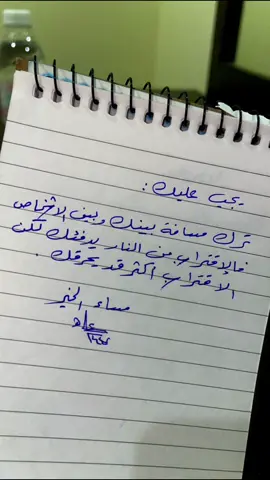 يجب عليك :
ترك مسافة بينك وبين الاشخاص
فالإقتراب من النار يدفئك لكن
الاقتراب اكثر قد يحرقك .
مساء الخير